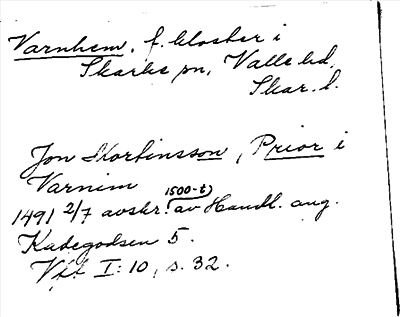 Varnhem, f. kloster i
Skarke sn, Valle hd,
Skar. l.
Jon Mortinsson, Prior i
Varnim
1491 2/7 avskr. (1500-t) av Handl. ang.
Kadegodsen 5.
I:10, s. 32.